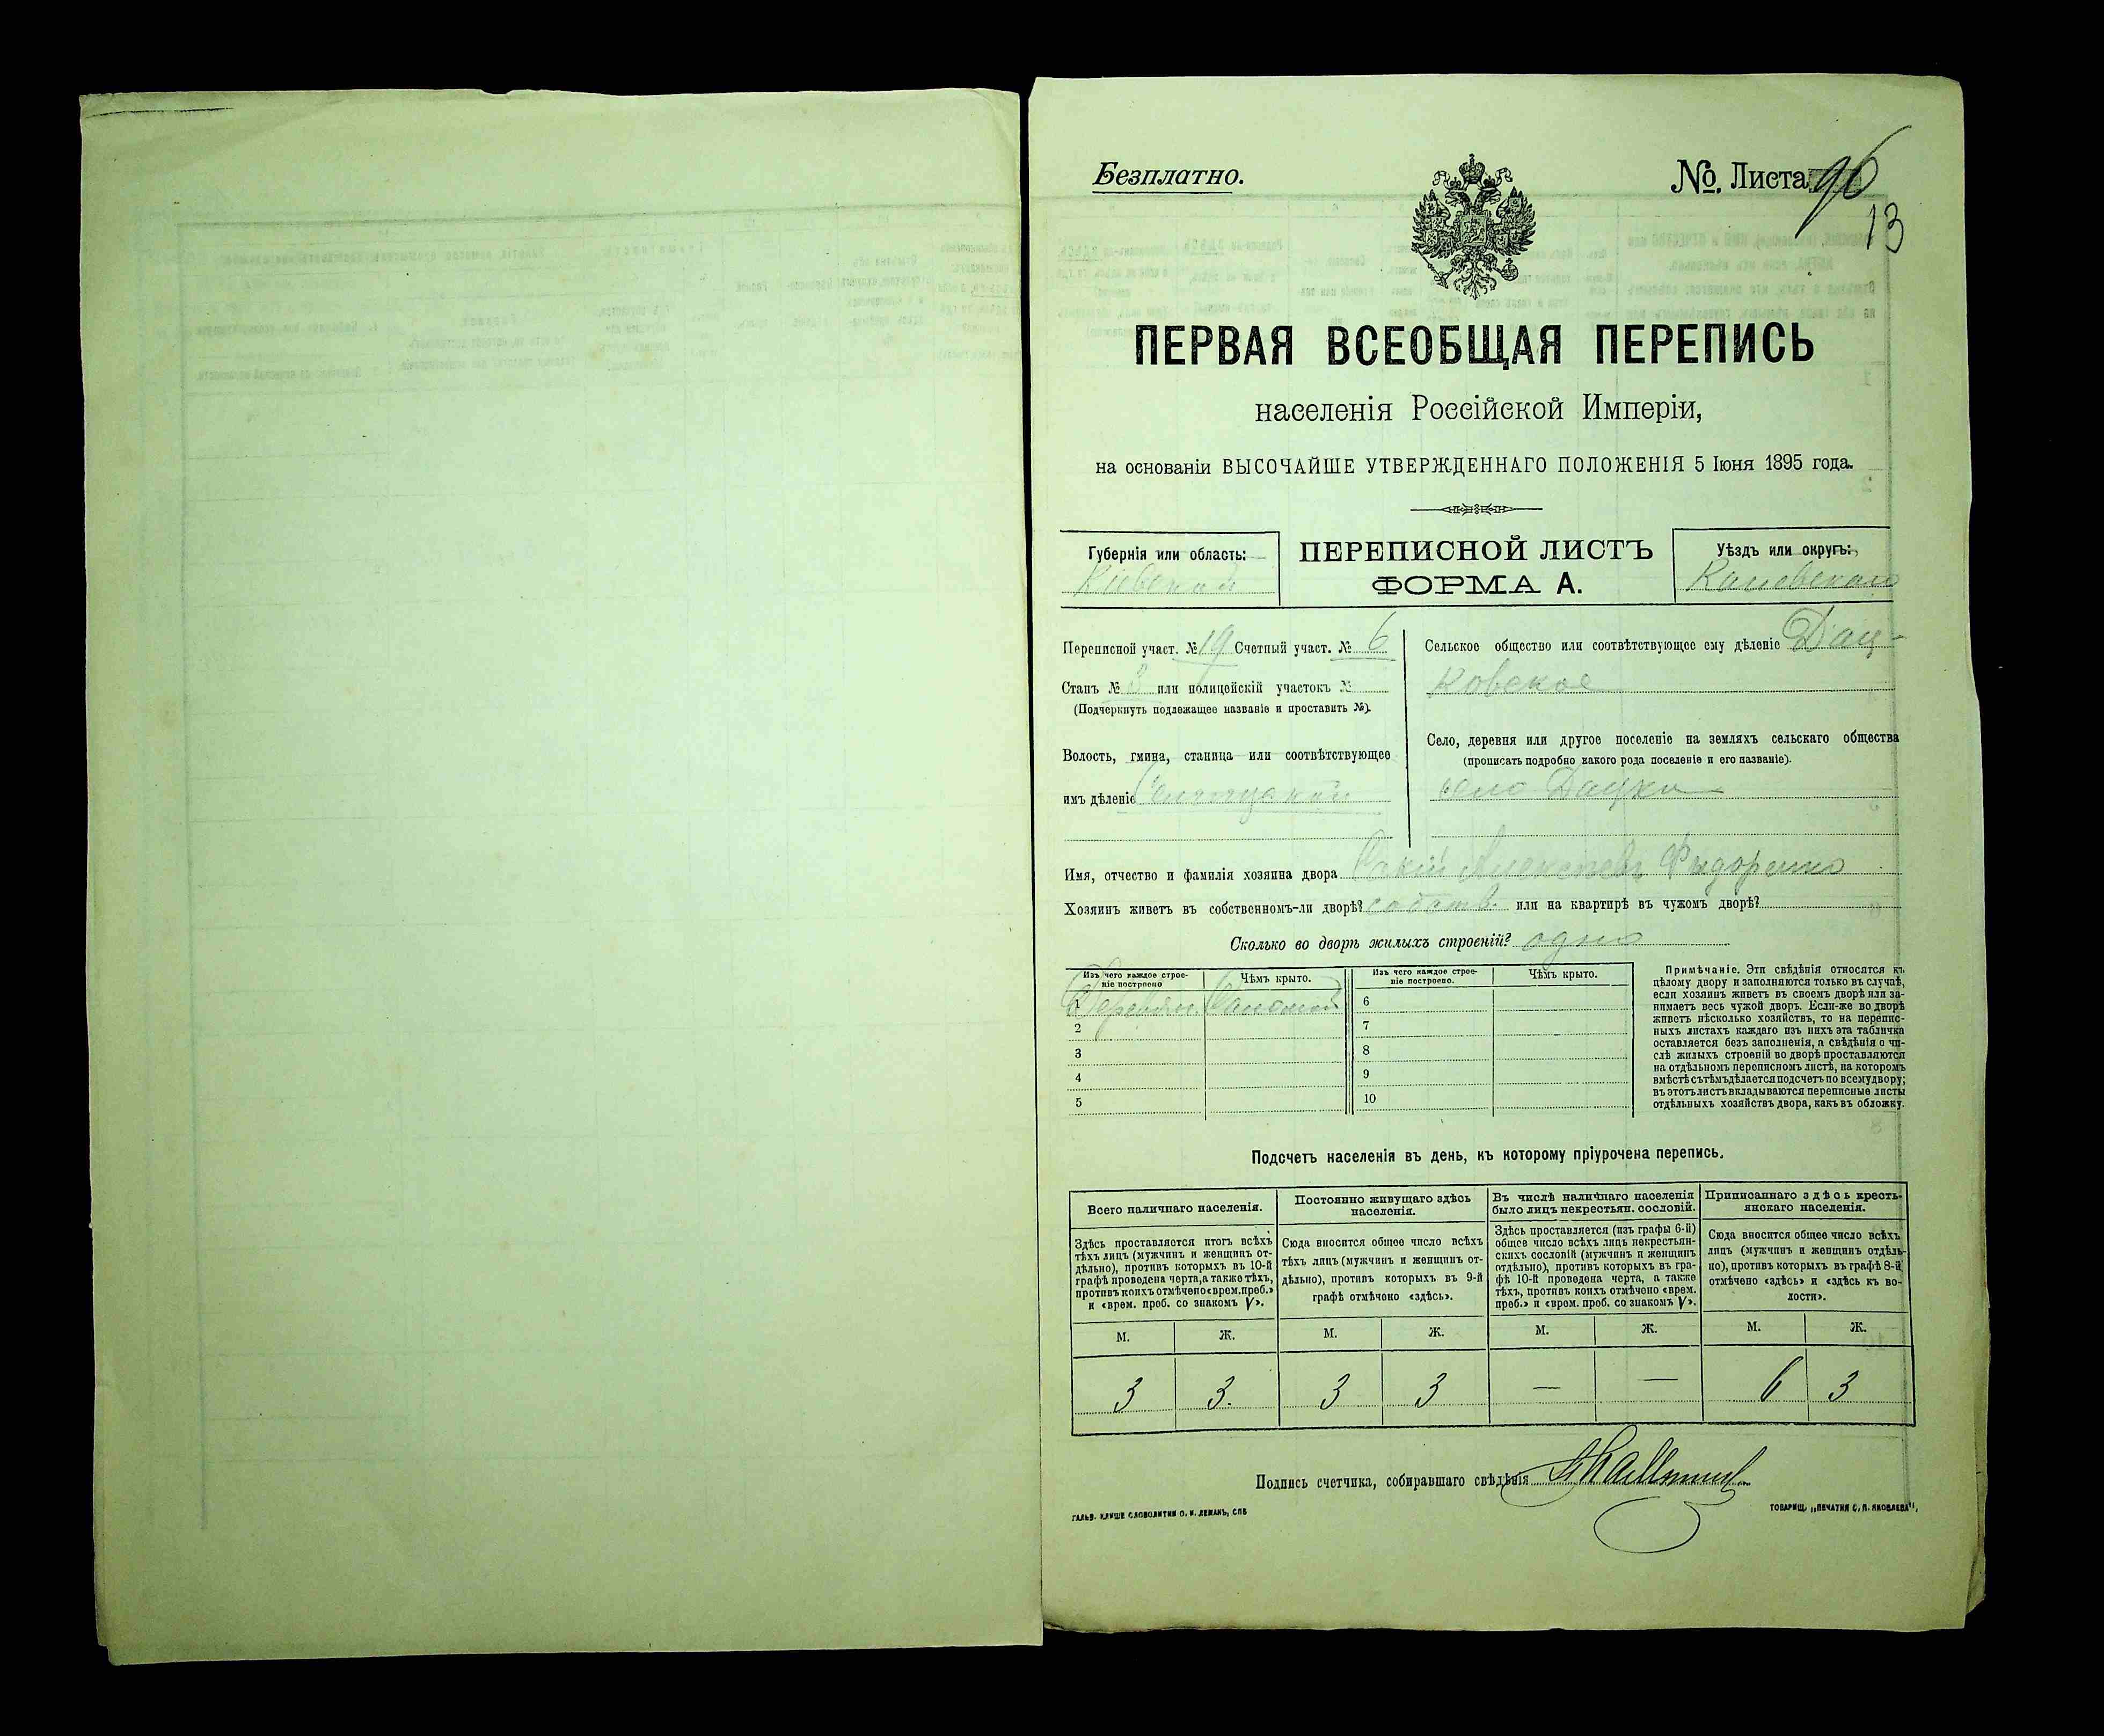 Безплатно.
№. Листа 96
13
ПЕРВАЯ ВСЕОБЩАЯ ПЕРЕПИСЬ
населенія Россійской Имперіи,
на основаніи ВЫСОЧАЙШЕ УТВЕРЖДЕННАГО ПОЛОЖЕНІЯ 5 Іюня 1895 года.
Губернія или область:
Кіевская
ПЕРЕПИСНОЙ ЛИСТЪ
ФОРМА А.
Уѣздъ или округъ:
Каневскаго
Переписной участ. № 19 Счетный участ. № 6
Станъ № 3 или полицейскій участокъ №
(Подчеркнуть подлежащее названіе и проставить №).
Волость, гмина, станица или соотвѣтствующее
имъ дѣленіе
Сельское общество или соотвѣтствующее ему дѣленіе Дац-
ковское
Село, деревня или другое поселеніе на земляхъ сельскаго общества
(прописать подробно какого рода поселеніе и его названіе).
село Дацки
Имя, отчество и фамилія хозяина двора Алексѣевъ
Хозяинъ живетъ въ собственномъ-ли дворѣ? собств. или на квартирѣ въ чужомъ дворѣ?
Сколько во дворѣ жилыхъ строеній? одно
Изъ чего каждое строе-
ніе построено
Чѣмъ крыто.
Изъ чего каждое строе-
ніе построено.
Чѣмъ крыто.
1 Деревян. Соломой
2
3
4
5
6
7
8
9
10
Примѣчаніе. Эти свѣдѣнія относятся къ
цѣлому двору и заполняются только въ случаѣ,
если хозяинъ живетъ въ своемъ дворѣ или за-
нимаетъ весь чужой дворъ. Если-же во дворѣ
живетъ нѣсколько хозяйствъ, то на перепис-
ныхъ листахъ каждаго изъ нихъ эта табличка
оставляется безъ заполненія, а свѣдѣнія о чи-
слѣ жилыхъ строеній во дворѣ проставляются
на отдѣльномъ переписномъ листѣ, на которомъ
вмѣстѣ съ тѣмъ дѣлается подсчетъ по всему двору;
въ этотъ листъ вкладываются переписные листы
отдѣльныхъ хозяйствъ двора, какъ въ обложку.
Подсчетъ населенія въ день, къ которому пріурочена перепись.
Всего наличнаго населенія.
Здѣсь проставляется итогъ всѣхъ
тѣхъ лицъ (мужчинъ и женщинъ от-
дѣльно), противъ которыхъ въ 10-й
графѣ проведена черта, а также тѣхъ,
противъ коихъ отмѣчено «врем. преб.»
и «врем. преб. со знакомъ V».
Постоянно живущаго здѣсь
населенія.
Сюда вносится общее число всѣхъ
тѣхъ лицъ (мужчинъ и женщинъ от-
дѣльно), противъ которыхъ въ 9-й
графѣ отмѣчено «здѣсь».
Въ числѣ наличнаго населенія
было лицъ некрестьян. сословій.
Здѣсь проставляется (изъ графы 6-й)
общее число всѣхъ лицъ некрестьян-
скихъ сословій (мужчинъ и женщинъ
отдѣльно), противъ которыхъ въ гра-
фѣ 10-й проведена черта, а также
тѣхъ, противъ коихъ отмѣчено «врем.
преб.» и «врем. преб. со знакомъ V».
Приписаннаго здѣсь кресть-
янскаго населенія.
Сюда вносится общее число всѣхъ
лицъ (мужчинъ и женщинъ отдѣль-
но), противъ которыхъ въ графѣ 8-й
отмѣчено «здѣсь» и «здѣсь къ во-
лости».
М. Ж. М. Ж. М. Ж. М. Ж.
3 3. 3 3 — — 6 3
Подпись счетчика, собиравшаго свѣдѣнія
ГАЛЬВ. КЛИШЕ СЛОВОЛИТНИ О. И. ЛЕМАНЪ, СПБ
ТОВАРИЩ. „ПЕЧАТНЯ С. П. ЯКОВЛЕВА“,